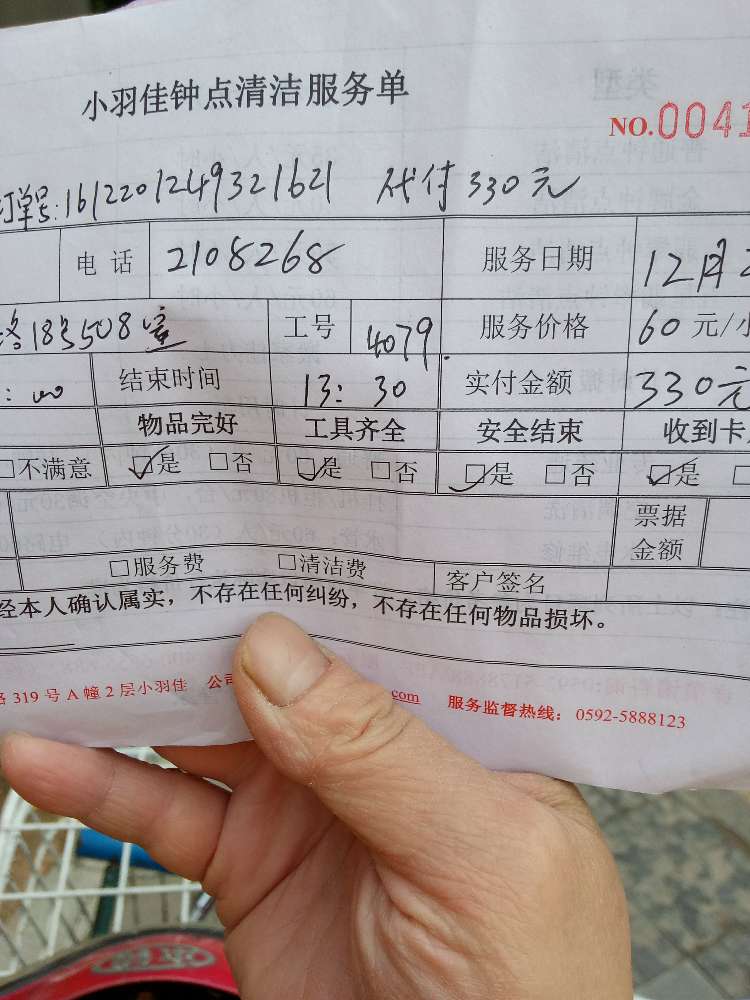 小羽佳钟点清洁服务单
NO.0041
订单号:1612201249321621 代付330元
电话 2108268 服务日期 12月2
路18号508室 工号 4079. 服务价格 60元/小
:00 结束时间 13:30 实付金额 330元
物品完好 工具齐全 安全结束 收到卡
□不满意 ☑是 □否 ☑是 □否 ☑是 □否 ☑是
票据
金额
□服务费 □清洁费 客户签名
经本人确认属实，不存在任何纠纷，不存在任何物品损坏。
路319号A幢2层小羽佳 公司 com 服务监督热线：0592-5888123